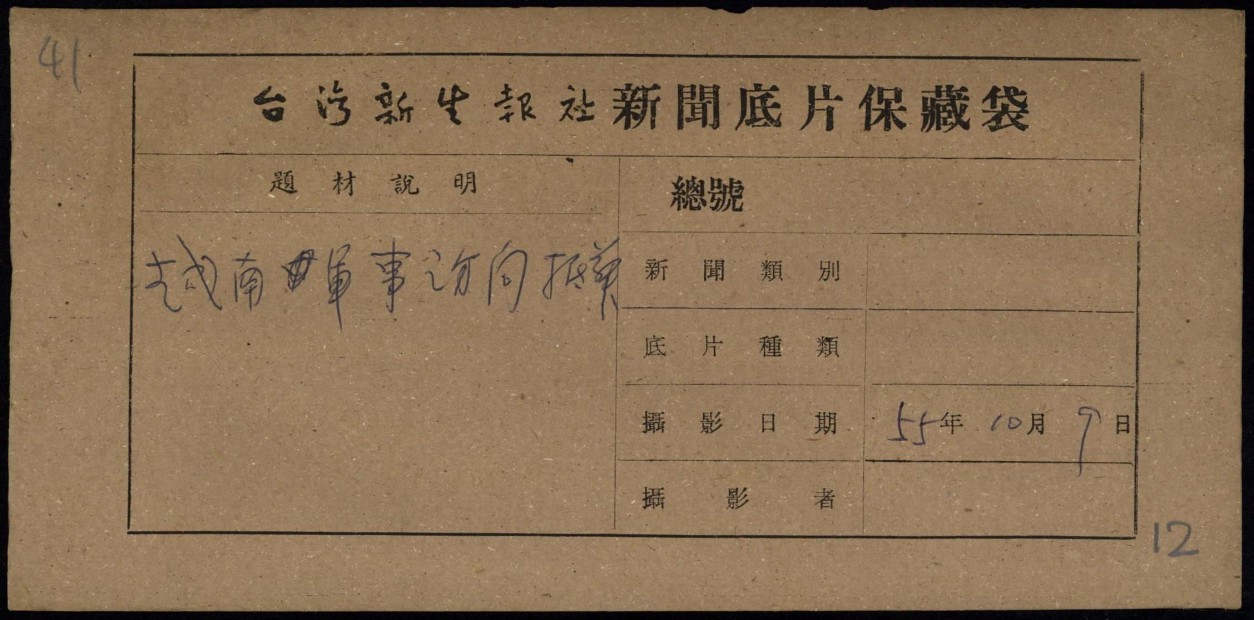 41
台湾新生報社新聞底片保藏袋
題材說明
越南軍事訪問抵華
總號
新聞類別
底片種類
攝影日期 55年10月9日
攝影者
12